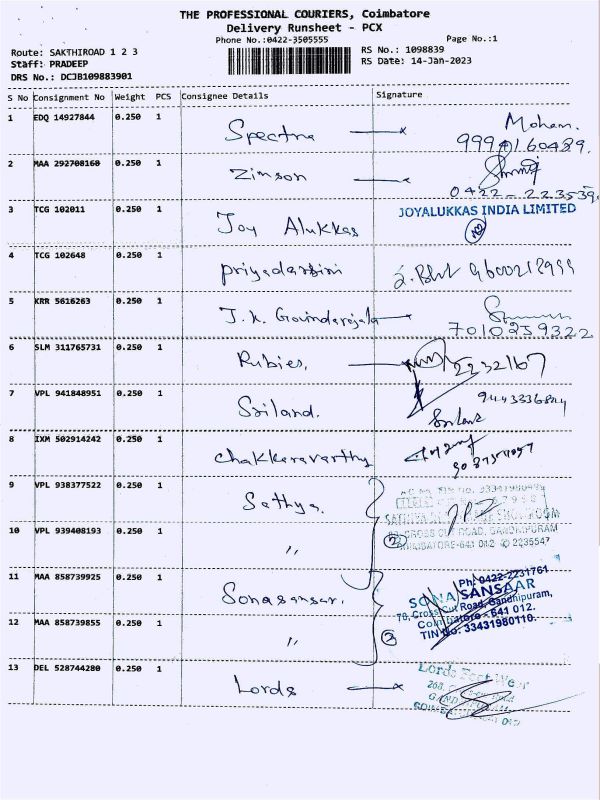 THE PROFESSIONAL COURIERS, Coimbatore
Delivery Runsheet - PCX
Phone No.:0422-3505555
Page No.:1
Route: SAKTHIROAD 1 2 3
RS No.: 1098839
Staff: PRADEEP
RS Date: 14-Jan-2023
DRS No.: DCJB109883901
S No Consignment No Weight PCS Consignee Details Signature
1 EDQ 14927844 0.250 1 Spectra Mohan.
9994160489.
2 MAA 292708160 0.250 1 Zimson
0422-223539.
3 TCG 102011 0.250 1 Joy Alukkas JOYALUKKAS INDIA LIMITED
4 TCG 102648 0.250 1 priyadarsini
5 KRR 5616263 0.250 1 J.K. Govindarajala
7010259322
6 SLM 311765731 0.250 1 Rubies. 2232167
7 VPL 941848951 0.250 1 Sriland.
8 IXM 502914242 0.250 1 chakkaravarthy
9 VPL 938377522 0.250 1 Sathya.
10 VPL 939408193 0.250 1 "
CROSS CUT ROAD, GANDHIPURAM
COIMBATORE-641 012 2235547
11 MAA 858739925 0.250 1 Sonasansar. Ph: 0422-2231761
SONA SANSAAR
76, Cross Cut Road, Gandhipuram,
Coimbatore - 641 012.
TIN No: 33431980110.
12 MAA 858739855 0.250 1 "
13 DEL 528744280 0.250 1 Lords Lords Foot Wear